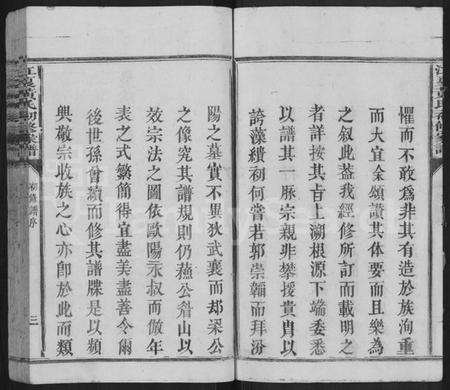 懼而不敢爲非其有造於族洵重
而大宜余頌讚其体要而且樂為
之叙此葢我經修所訂而載明之
者詳按其占上溯根源下端委悉
以譜其一脉宗親非攀援貴胄以
誇藻繢初何嘗若郭崇韜而拜汾
初修譜序
三
陽之墓實不異狄武襄而却梁公
之像究其譜規則仍蘓公眷山以
效宗法之圖依歐陽永叔而倣年
表之式繁簡得宜盡美盡善令爾
後世孫曾續而修其譜牒是以類
興敬宗收族之心亦即於此而類